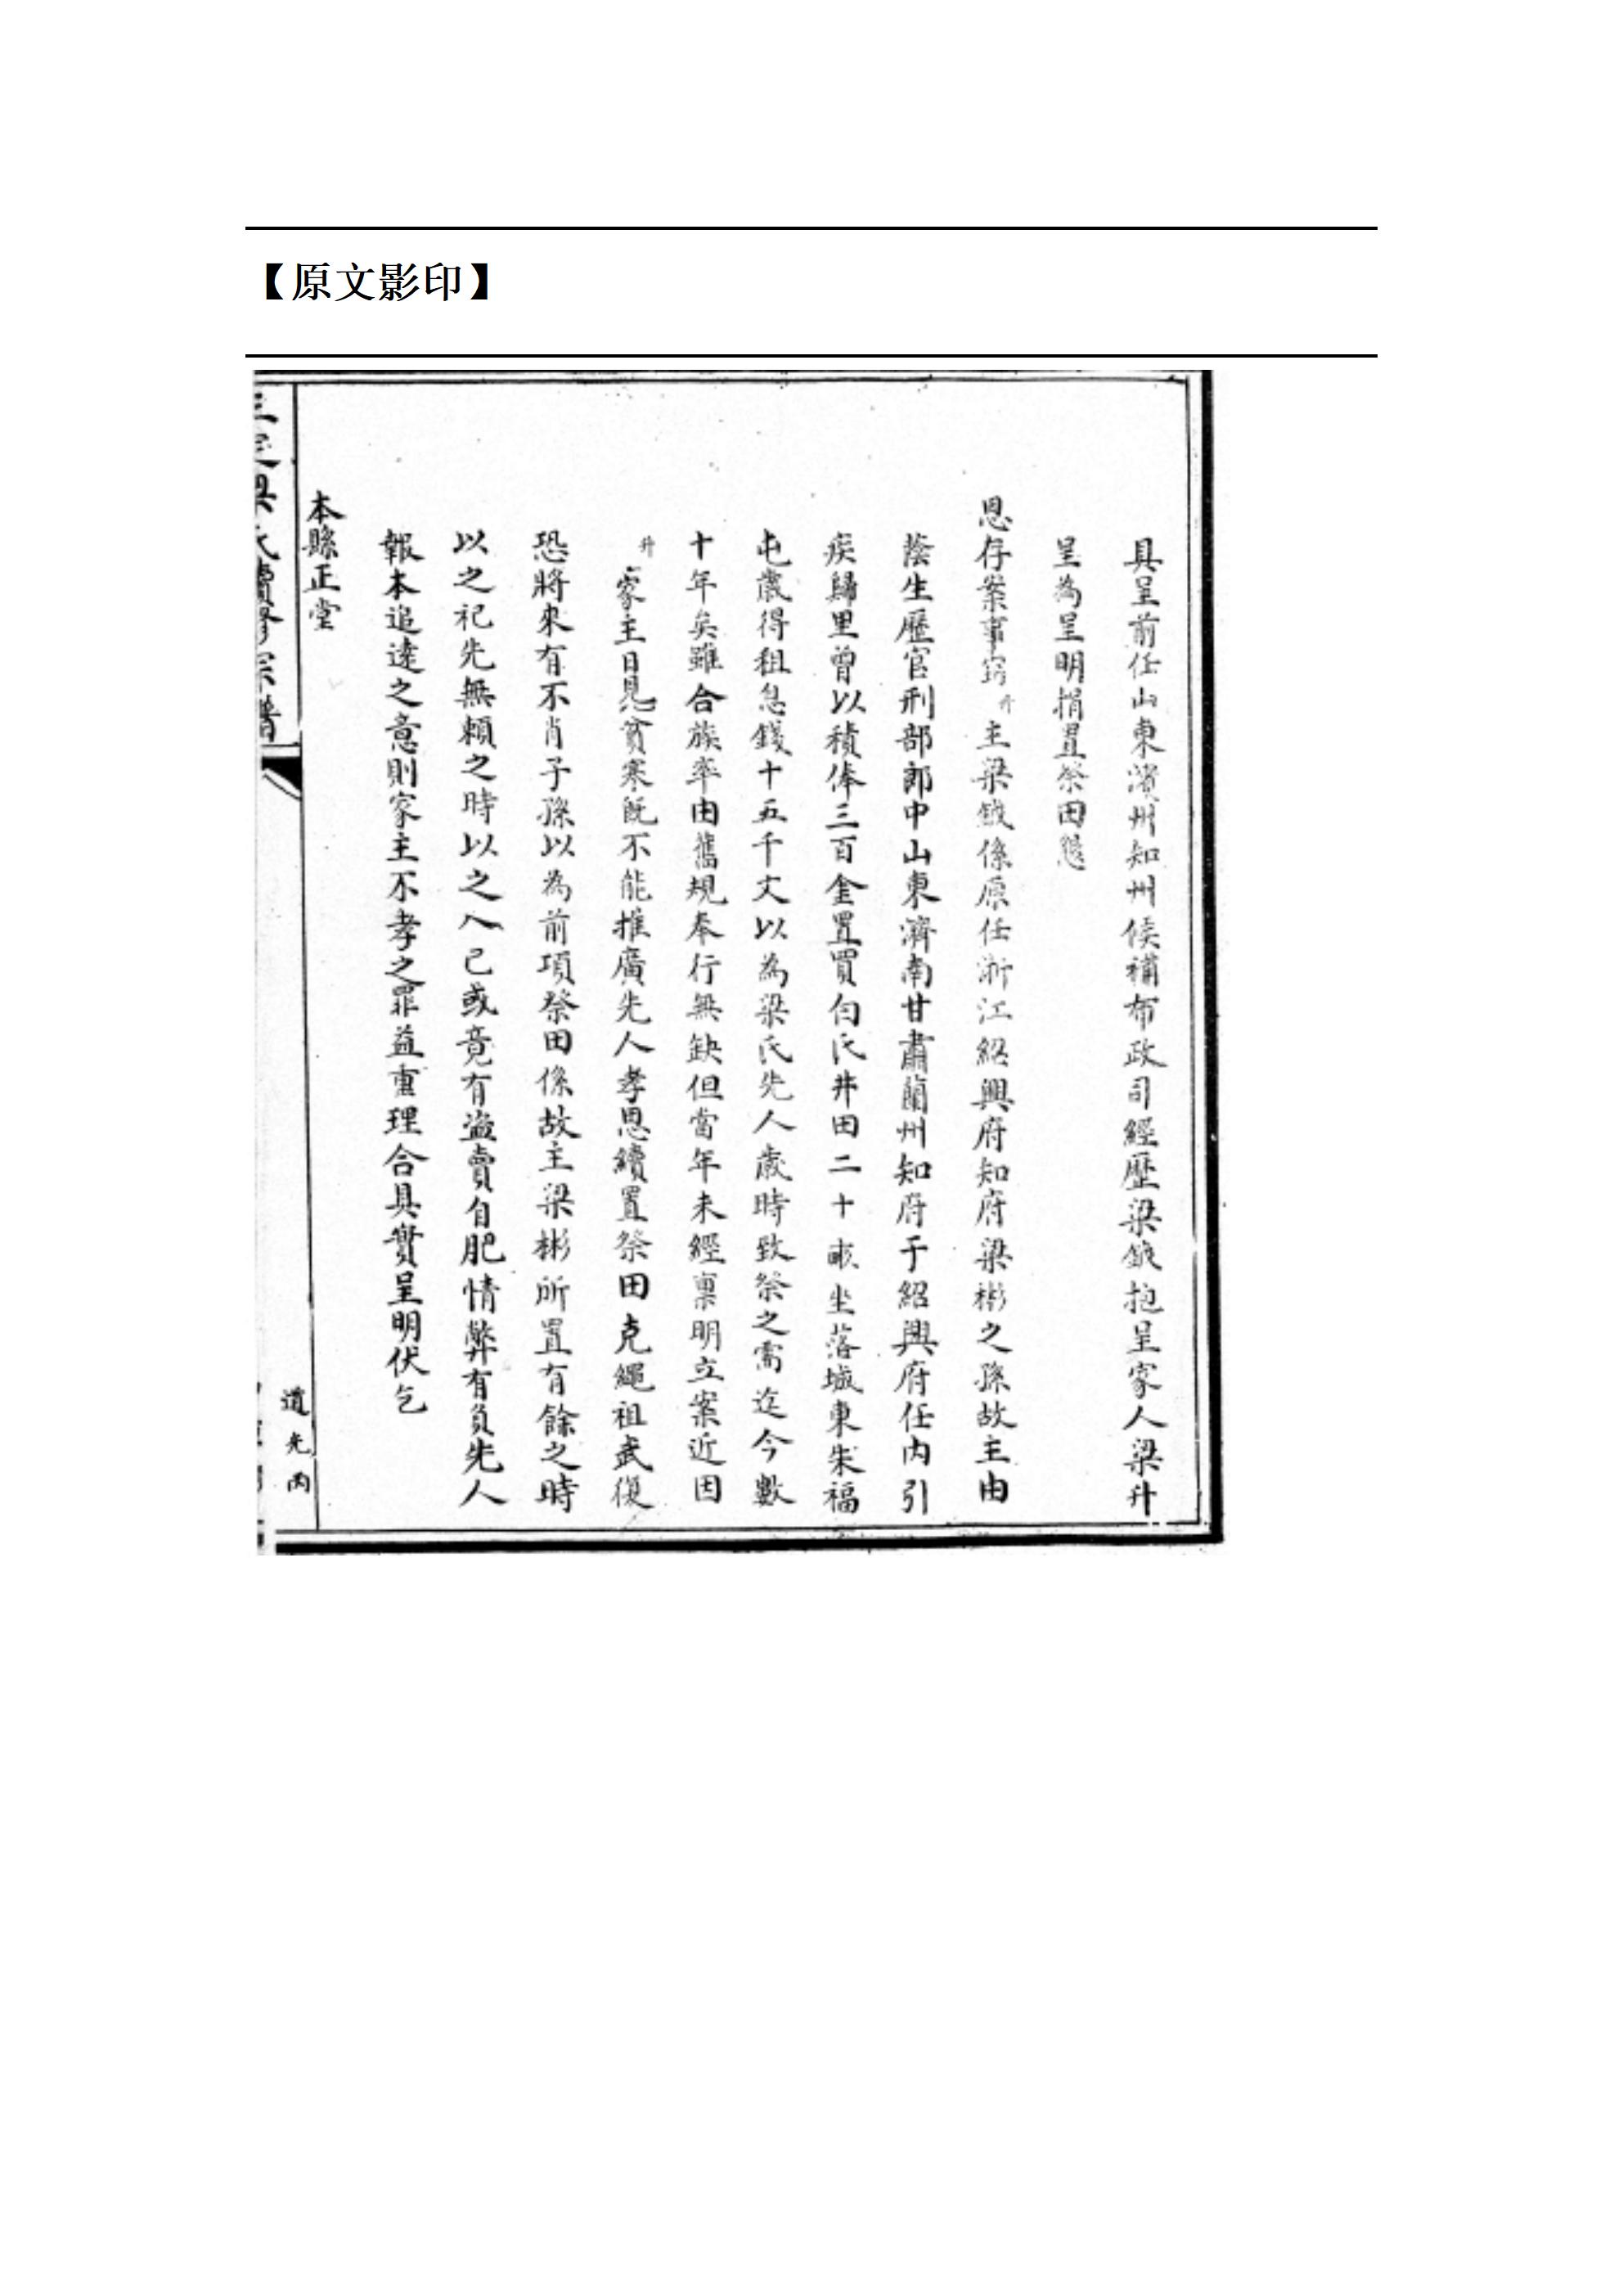 【原文影印】
具呈前任山東濱州知州候補布政司經歷梁鉞抱呈家人梁升
呈為呈明捐置祭田懇
恩存案事竊升主梁鉞係原任浙江紹興府知府梁彬之孫故主由
蔭生歷官刑部郎中山東濟南甘肅蘭州知府于紹興府任內引
疾歸里曾以積俸三百金置買白氏井田二十畝坐落城東朱福
屯歲得租息錢十五千文以為梁氏先人歲時致祭之需迄今數
十年矣雖合族率由舊規奉行無缺但當年未經稟明立案近因
升家主日見貧寒既不能推廣先人孝思續置祭田克繩祖武復
恐將來有不肖子孫以為前項祭田係故主梁彬所置有餘之時
以之祀先無賴之時以之入己或竟有盜賣自肥情弊有負先人
報本追遠之意則家主不孝之罪益重理合具實呈明伏乞
本縣正堂
道光丙
梁氏續修宗譜